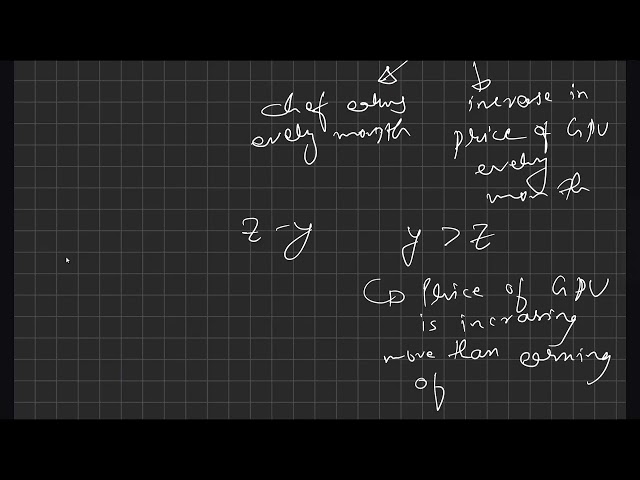 chef earns
every month
increase in
price of GPU
every
month
z - y
y > z
↳ Price of GPU
is incrasing
more than earning
of